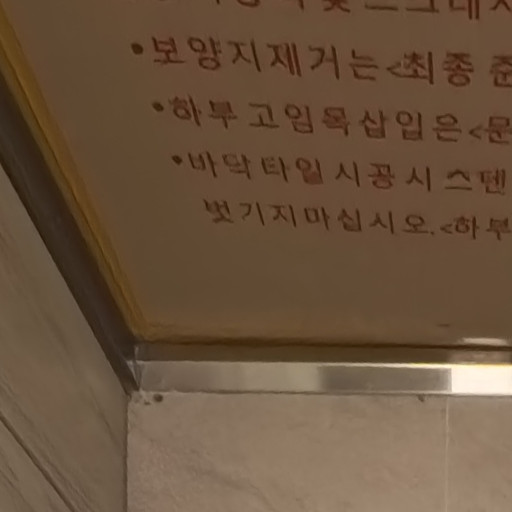 •보양지제거는<최종 준
•하부고임목삽입은<문
•바닥타일시공시 스텐
벗기지마십시오.<하부